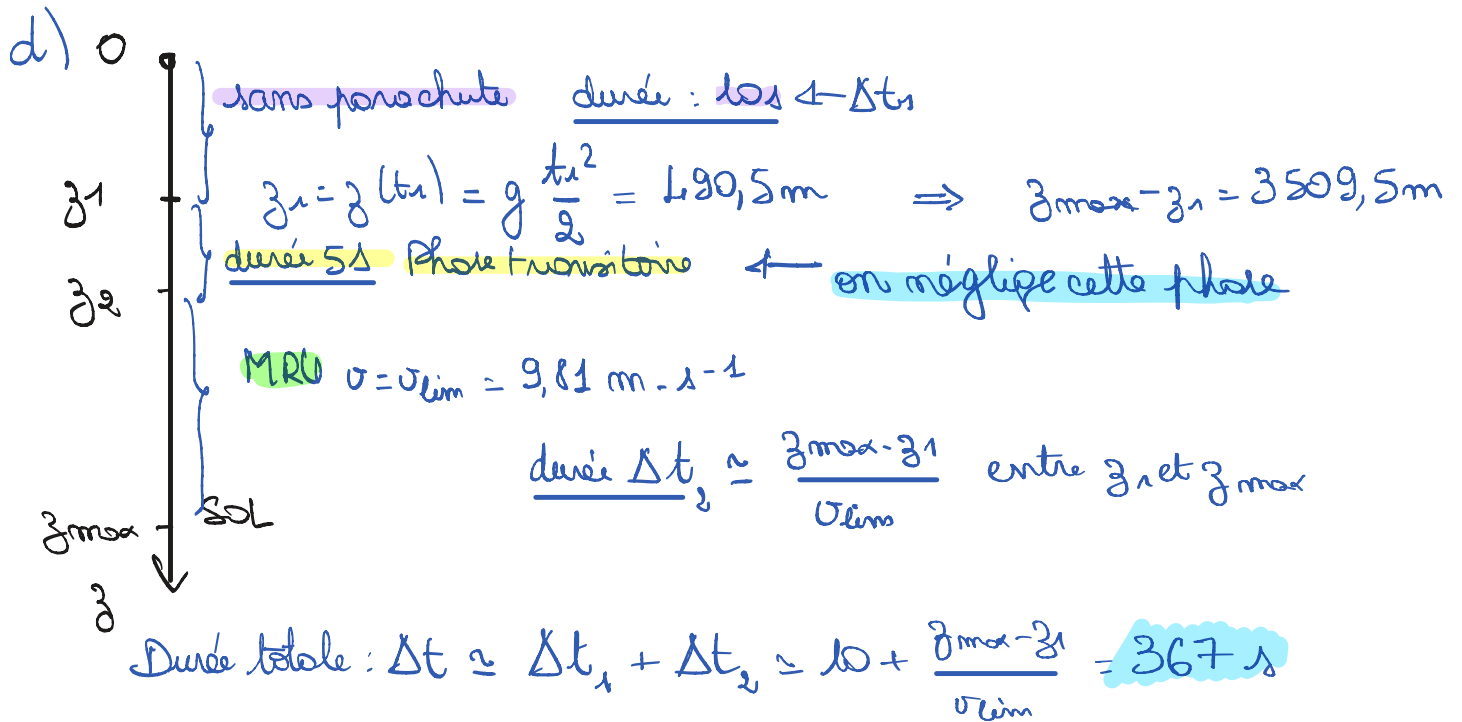 d) O
sans parachute durée : 10s ← Δt₁
z1
z₁ = z(t₁) = g t₁²/2 = 490,5m ⇒ zmax - z₁ = 3509,5m
durée 5s Phase transitoire ← on néglige cette phase
z2
MRU v = vlim = 9,81 m.s-1
durée Δt₂ ≃ zmax-z1/vlim entre z₁ et zmax
zmax SOL
z
Durée totale : Δt ≃ Δt₁ + Δt₂ ≃ 10 + zmax-z1/vlim = 367 s